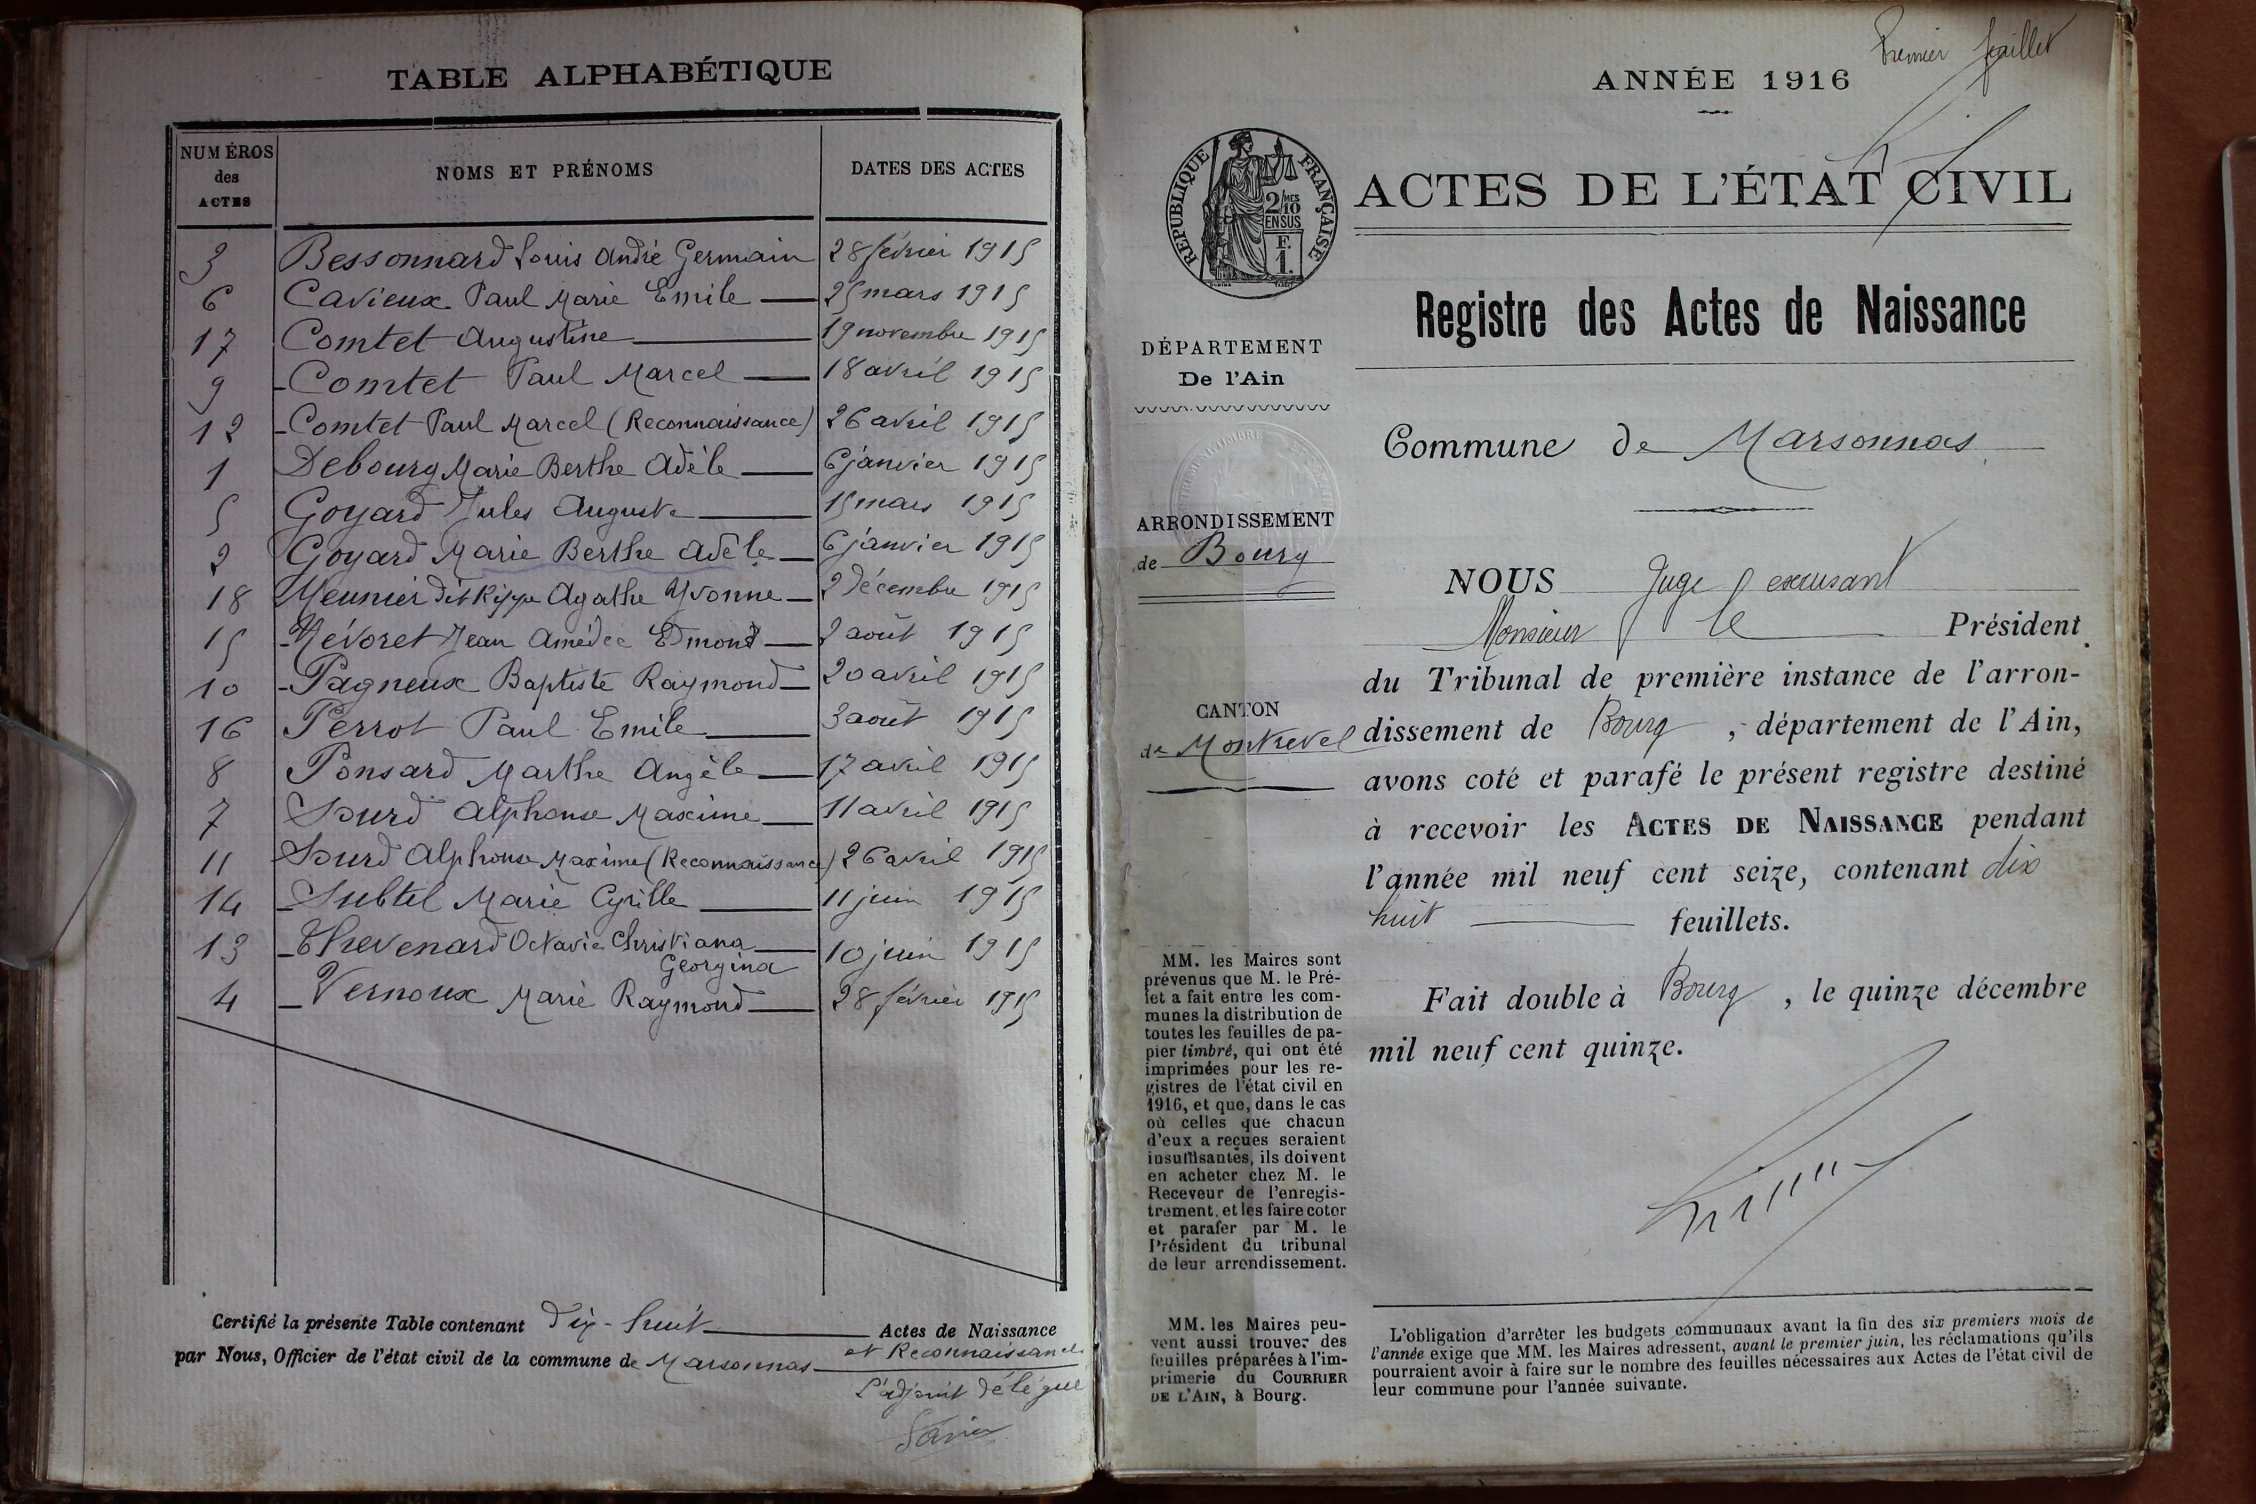 TABLE ALPHABÉTIQUE
NUMÉROS des ACTES
NOMS ET PRÉNOMS
DATES DES ACTES
3 Bessonnard Louis André Germain 28 février 1915
6 Cavieux Paul Marie Emile 25 mars 1915
17 Comtet Augustine 19 novembre 1915
9 Comtet Paul Marcel 18 avril 1915
12 Comtet Paul Marcel (Reconnaissance) 26 avril 1915
1 Debourg Marie Berthe Adèle 6 janvier 1915
5 Goyard Jules Auguste 15 mars 1915
2 Goyard Marie Berthe Adèle 6 janvier 1915
18 Meunier dit Rippe Agathe Yvonne 2 décembre 1915
15 Névoret Jean Amédée Edmond 2 août 1915
10 Pagneux Baptiste Raymond 20 avril 1915
16 Perrot Paul Emile 3 août 1915
8 Ponsard Marthe Angèle 17 avril 1915
7 Sourd Alphonse Maxime 11 avril 1915
11 Sourd Alphonse Maxime (Reconnaissance) 26 avril 1915
14 Subtil Marie Cyrille 11 juin 1915
13 Thevenard Octavie Christiana 10 juin 1915
Georgina
4 Vernoux Marie Raymond 28 février 1915
Certifié la présente Table contenant dix-huit Actes de Naissance
et Reconnaissances
par Nous, Officier de l'état civil de la commune de Marsonnas
L'adjoint délégué
Premier feuillet
ANNÉE 1916
RÉPUBLIQUE FRANÇAISE
2/10 MES
EN SUS
F.
1.
ACTES DE L'ÉTAT CIVIL
Registre des Actes de Naissance
DÉPARTEMENT
De l'Ain
Commune de Marsonnas
ARRONDISSEMENT
de Bourg
CANTON
de Montrevel
NOUS Juge excusant
Monsieur le Président
du Tribunal de première instance de l'arron-
dissement de Bourg, département de l'Ain,
avons coté et parafé le présent registre destiné
à recevoir les ACTES DE NAISSANCE pendant
l'année mil neuf cent seize, contenant dix
huit feuillets.
Fait double à Bourg, le quinze décembre
mil neuf cent quinze.
MM. les Maires sont
prévenus que M. le Pré-
fet a fait entre les com-
munes la distribution de
toutes les feuilles de pa-
pier timbré, qui ont été
imprimées pour les re-
gistres de l'état civil en
1916, et que, dans le cas
où celles que chacun
d'eux a reçues seraient
insuffisantes, ils doivent
en acheter chez M. le
Receveur de l'enregis-
trement, et les faire coter
et parafer par M. le
Président du tribunal
de leur arrondissement.
MM. les Maires peu-
vent aussi trouver des
feuilles préparées à l'im-
primerie du COURRIER
DE L'AIN, à Bourg.
L'obligation d'arrêter les budgets communaux avant la fin des six premiers mois de
l'année exige que MM. les Maires adressent, avant le premier juin, les réclamations qu'ils
pourraient avoir à faire sur le nombre des feuilles nécessaires aux Actes de l'état civil de
leur commune pour l'année suivante.